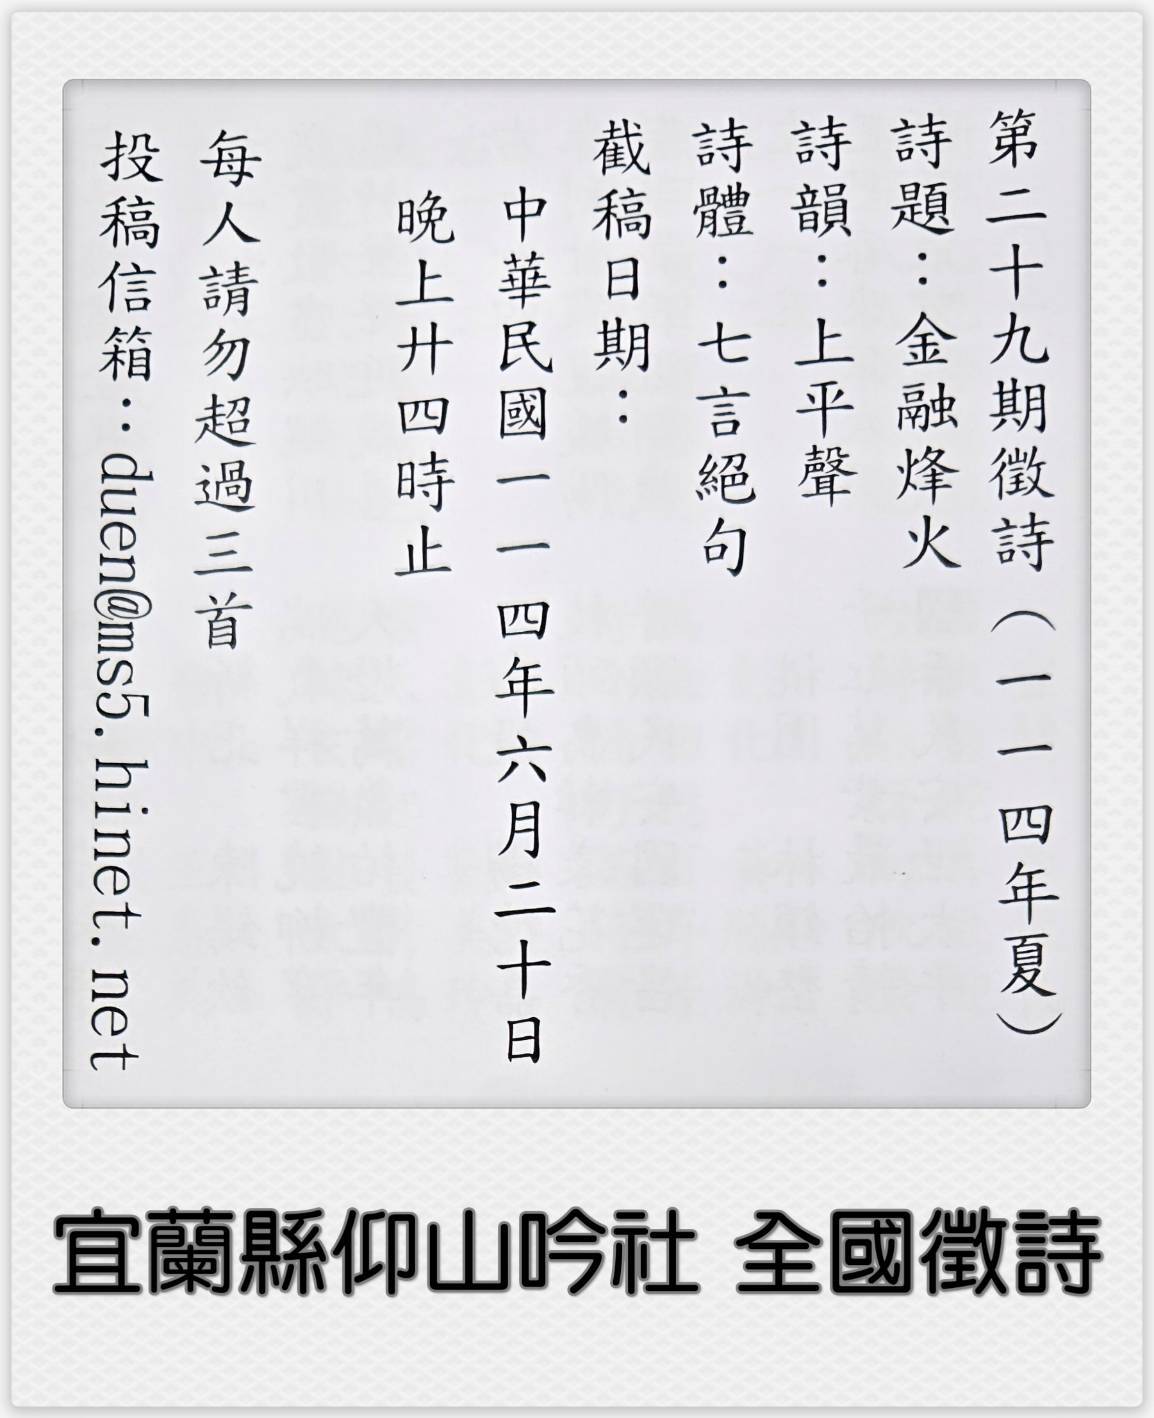 第二十九期徵詩（一一四年夏）
詩題：金融烽火
詩韻：上平聲
詩體：七言絕句
截稿日期：
中華民國一一四年六月二十日
晚上廿四時止
每人請勿超過三首
投稿信箱：duen@ms5.hinet.net
宜蘭縣仰山吟社 全國徵詩